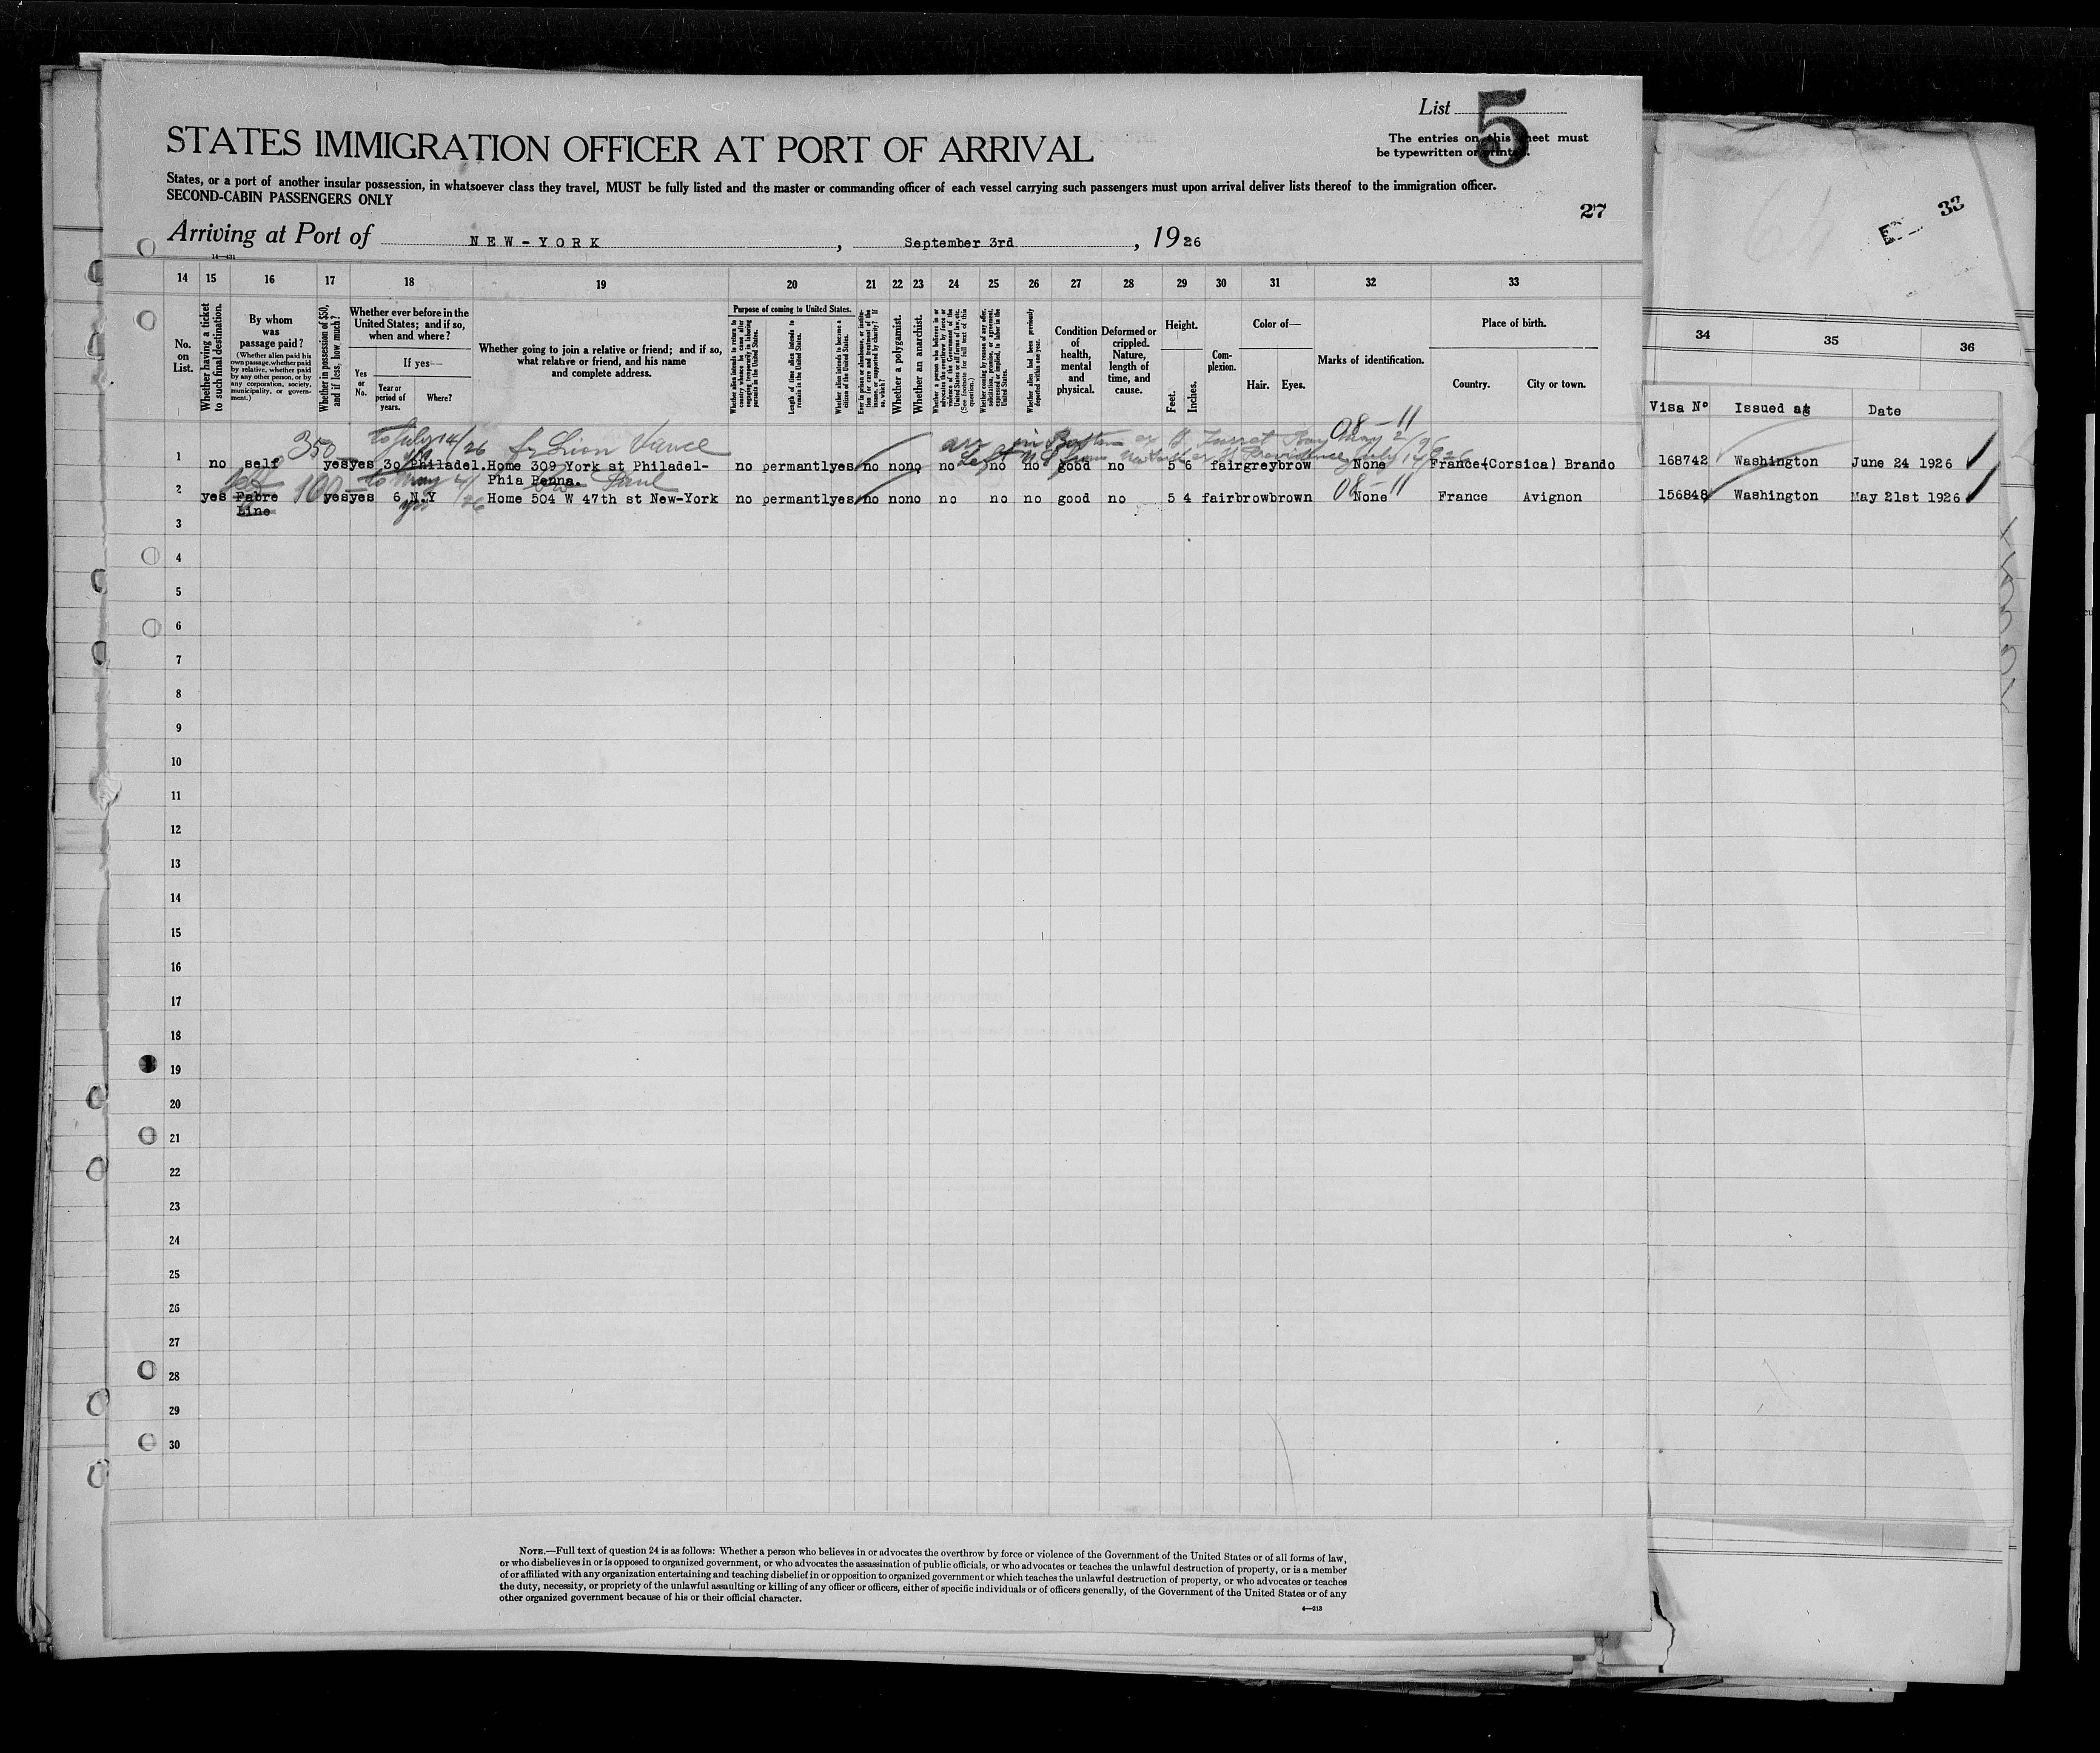 List 5
The entries on this sheet must
be typewritten or printed.
STATES IMMIGRATION OFFICER AT PORT OF ARRIVAL
States, or a port of another insular possession, in whatsoever class they travel, MUST be fully listed and the master or commanding officer of each vessel carrying such passengers must upon arrival deliver lists thereof to the immigration officer.
SECOND-CABIN PASSENGERS ONLY
27
33
Arriving at Port of NEW-YORK, September 3rd, 1926
14 15 16 17 18 19 20 21 22 23 24 25 26 27 28 29 30 31 32 33
34 35 36
No. on List.
Whether having a ticket to such final destination.
By whom was passage paid?
(Whether alien paid his own passage, whether paid by relative, whether paid by any other person, or by any corporation, society, municipality, or government.)
Whether in possession of $50, and if less, how much?
Whether ever before in the United States; and if so, when and where?
If yes—
Yes or No.
Year or period of years.
Where?
Whether going to join a relative or friend; and if so, what relative or friend, and his name and complete address.
Purpose of coming to United States.
Whether alien intends to return to country whence he came after engaging temporarily in laboring pursuits in the United States.
Length of time alien intends to remain in the United States.
Whether alien intends to become a citizen of the United States.
Ever in prison or almshouse, or institution for care and treatment of the insane, or supported by charity? If so, which?
Whether a polygamist.
Whether an anarchist.
Whether a person who believes in or advocates the overthrow by force or violence of the Government of the United States or all forms of law, etc. (See footnote for full text of this question.)
Whether coming by reason of any offer, solicitation, promise, or agreement, expressed or implied, to labor in the United States.
Whether alien had been previously deported within one year.
Condition of health, mental and physical.
Deformed or crippled. Nature, length of time, and cause.
Height.
Feet.
Inches.
Complexion.
Color of—
Hair. Eyes.
Marks of identification.
Place of birth.
Country. City or town.
Visa Nº Issued at Date
350 to July 14/26
08-11
1 no self yes yes 30 Philadel. Home 309 York st Philadel- no permantly yes no no no no no no good no 5 6 fair grey brow None France (Corsica) Brando 168742 Washington June 24 1926
Phia Penna.
100 to May 2/26 Paul
08-11
2 yes Fabre yes yes 6 N.Y Home 504 W 47th st New-York no permantly yes no no no no no no good no 5 4 fair brow brown None France Avignon 156848 Washington May 21st 1926
Line
3
4
5
6
7
8
9
10
11
12
13
14
15
16
17
18
19
20
21
22
23
24
25
26
27
28
29
30
NOTE.—Full text of question 24 is as follows: Whether a person who believes in or advocates the overthrow by force or violence of the Government of the United States or of all forms of law,
or who disbelieves in or is opposed to organized government, or who advocates the assassination of public officials, or who advocates or teaches the unlawful destruction of property, or is a member
of or affiliated with any organization entertaining and teaching disbelief in or opposition to organized government or which teaches the unlawful destruction of property, or who advocates or teaches
the duty, necessity, or propriety of the unlawful assaulting or killing of any officer or officers, either of specific individuals or of officers generally, of the Government of the United States or of any
other organized government because of his or their official character.